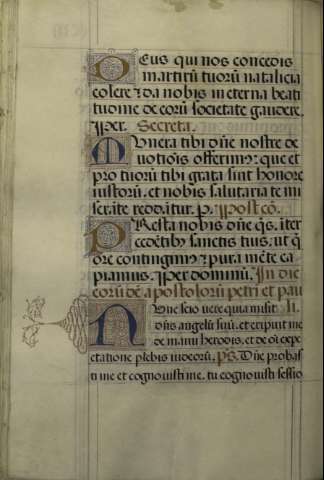 Deus qui nos concedis
martirũ tuorũ natalicia
colere ⁊ da nobis in eterna beati
tudine de eorũ societate gaudere.
Per. Secreta.
Munera tibi dñe nostre de
uotiõis offerimꝰ: que et
pro tuorũ tibi grata sint honore
iustorũ. et nobis salutaria te mi
serãte reddãtur. p. Postcõ.
Presta nobis dñe q̃s. ĩter
cedẽtibꝰ sanctis tuis. ut q̃
ore contingimꝰ ⁊ pura mẽte ca
piamus. Per dominũ. In die
eorũdẽ apostolorũ petri et pau
Nunc scio vere quia misit li.
dñs angelũ suũ. et eripuit me
de manu herodis. et de oĩ expe
ctatione plebis iudeorũ. Ps. Dñe probas
ti me et cognouisti me. tu cognouisti sessio